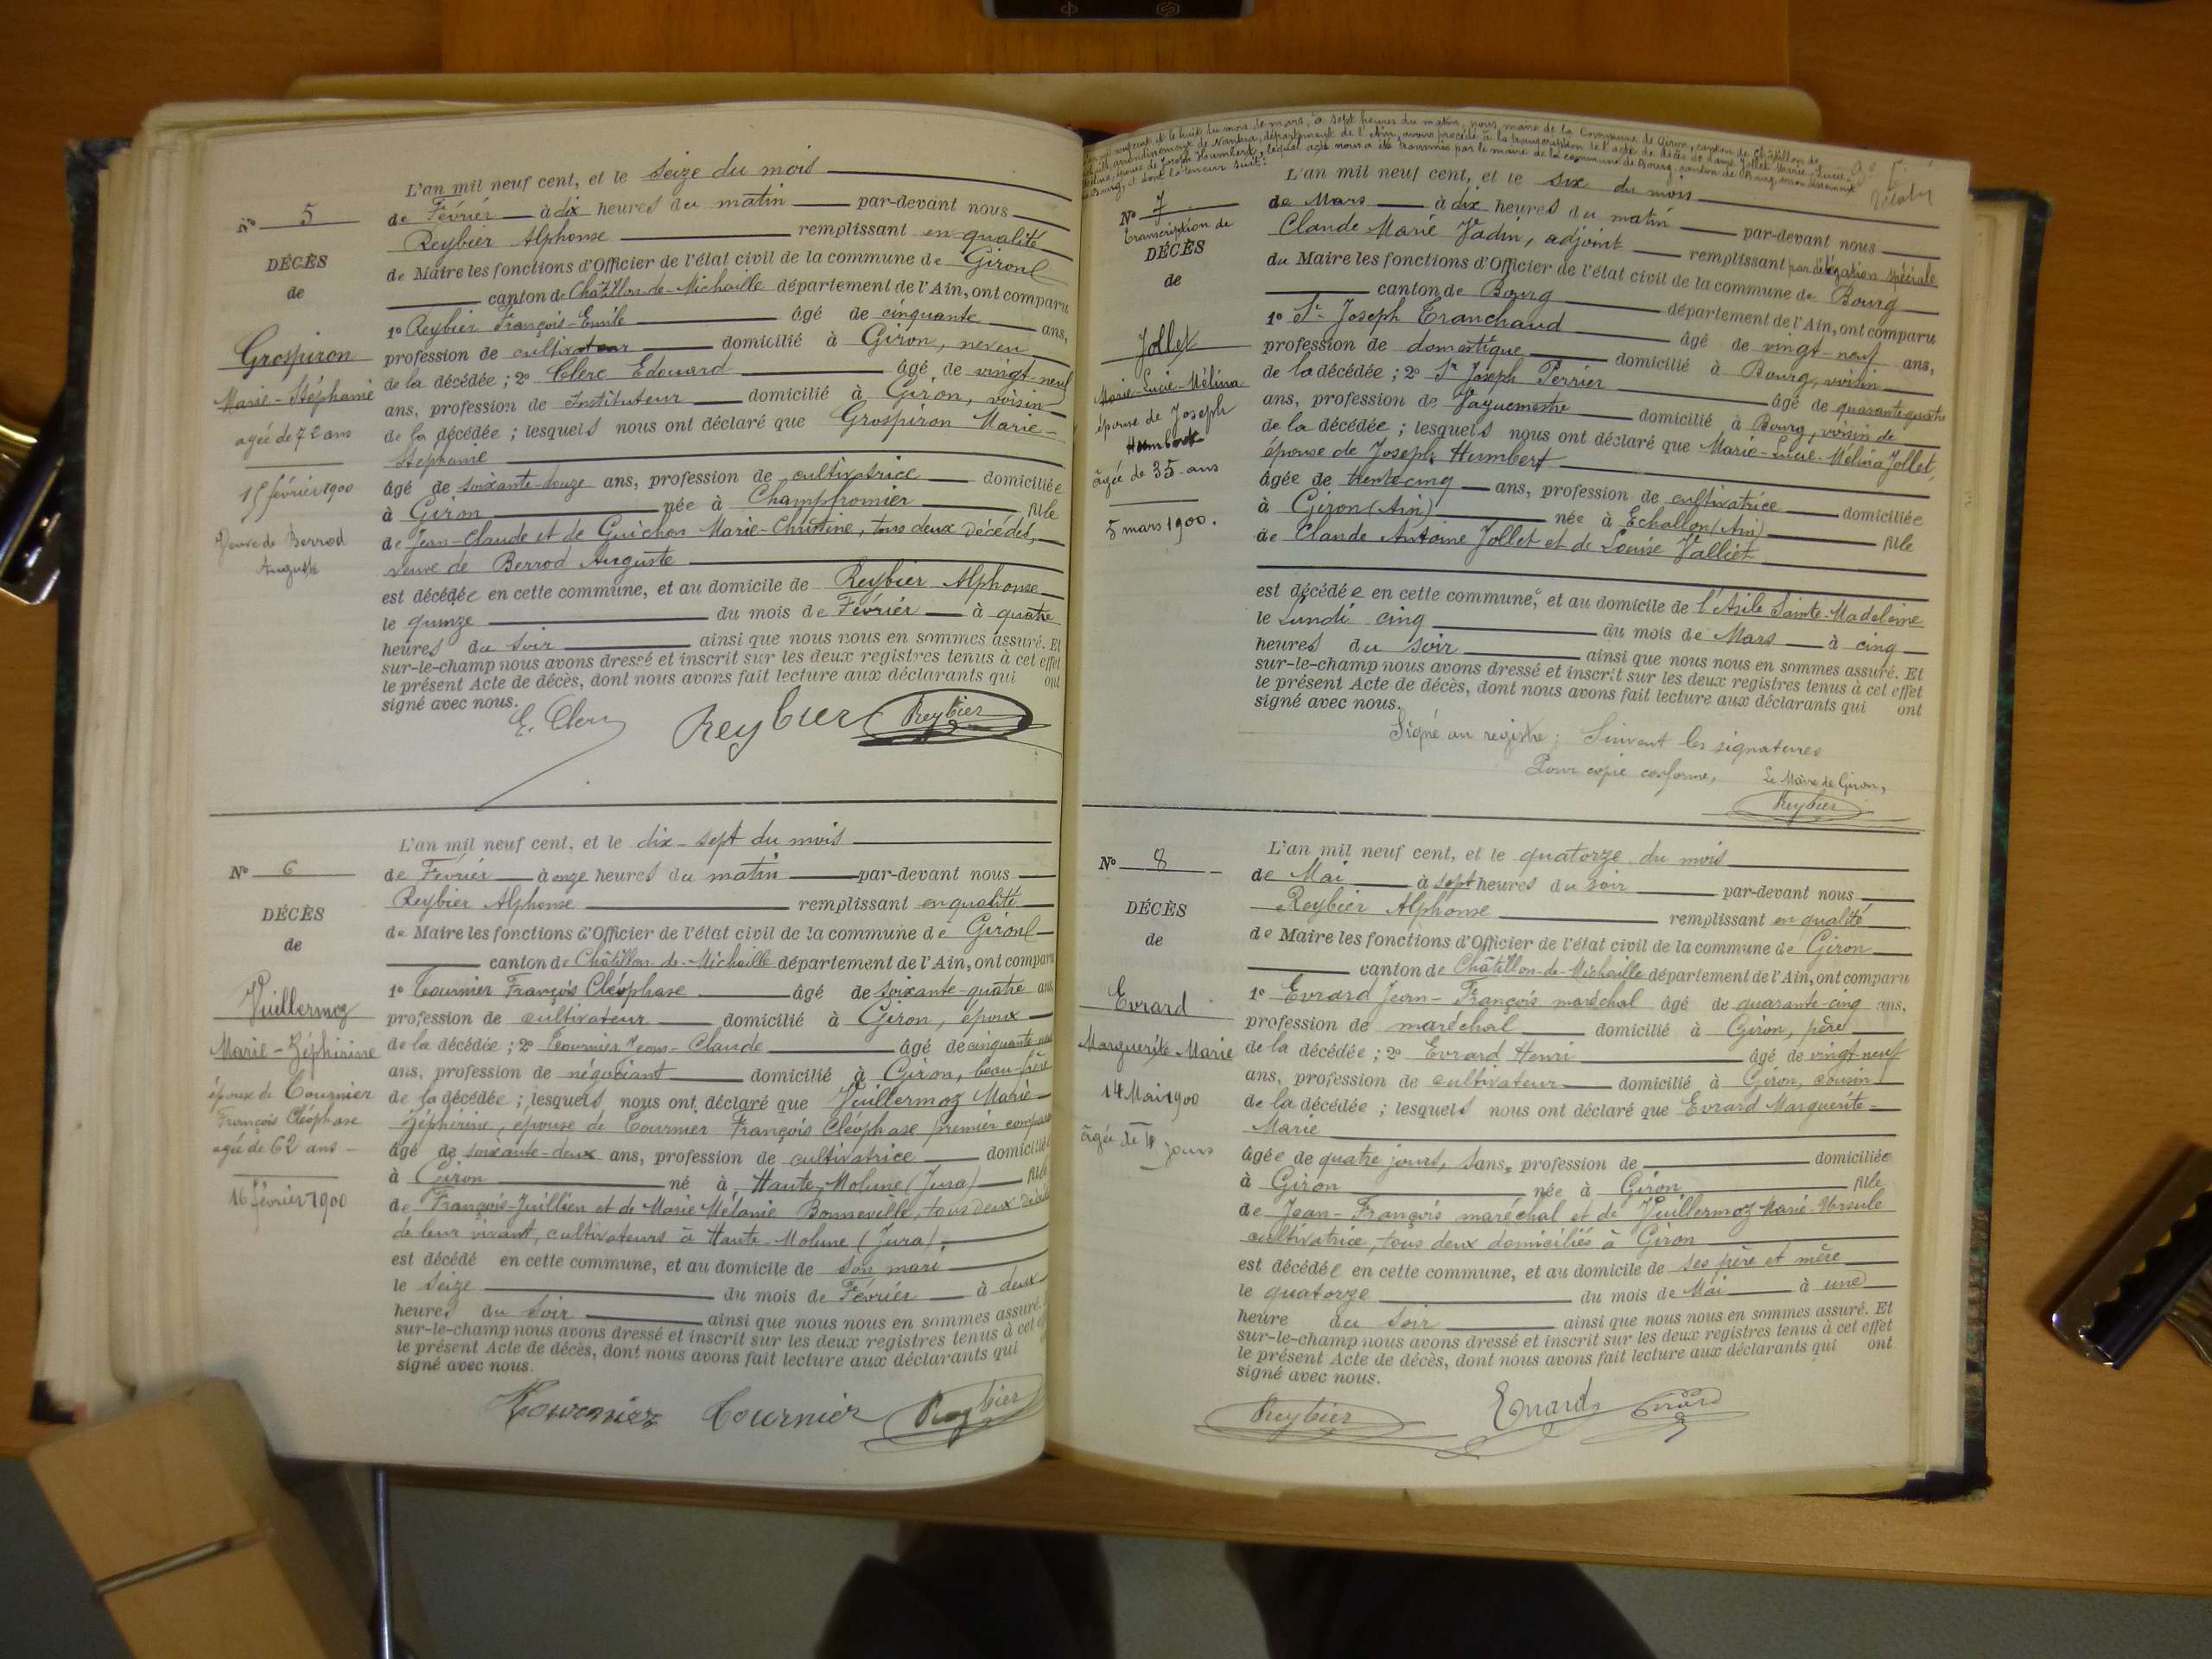 N° 5
DÉCÈS
de
Grospiron
Marie-Stéphanie
agée de 72 ans
15 février 1900
Veuve de Berrod
Auguste
L'an mil neuf cent, et le seize du mois
de Février à dix heures du matin par-devant nous
Reybier Alphonse remplissant en qualité
de Maire les fonctions d'Officier de l'état civil de la commune de Giron
canton de Châtillon-de-Michaille département de l'Ain, ont comparu
1° Reybier François-Emile âgé de cinquante ans,
profession de cultivateur domicilié à Giron, neveu
de la décédée ; 2° Clerc Edouard âgé de vingt-neuf
ans, profession de Instituteur domicilié à Giron, voisin
de la décédée ; lesquels nous ont déclaré que Grospiron Marie-
Stéphanie
âgé de soixante-douze ans, profession de cultivatrice domiciliée
à Giron née à Champfromier fille
de Jean-Claude et de Guichon Marie-Christine, tous deux décédés,
veuve de Berrod Auguste
est décédée en cette commune, et au domicile de Reybier Alphonse
le quinze du mois de Février à quatre
heures du soir ainsi que nous nous en sommes assuré. Et
sur-le-champ nous avons dressé et inscrit sur les deux registres tenus à cet effet
le présent Acte de décès, dont nous avons fait lecture aux déclarants qui ont
signé avec nous.
E. Clerc Reybier Reybier
N° 6
DÉCÈS
de
Vuillermoz
Marie-Zéphirine
épouse de Tournier
François Cléophase
agée de 62 ans
16 février 1900
L'an mil neuf cent, et le dix-sept du mois
de Février à onze heures du matin par-devant nous
Reybier Alphonse remplissant en qualité
de Maire les fonctions d'Officier de l'état civil de la commune de Giron
canton de Châtillon-de-Michaille département de l'Ain, ont comparu
1° Tournier François Cléophase âgé de soixante-quatre ans
profession de cultivateur domicilié à Giron, époux
de la décédée ; 2° Tournier Jean-Claude âgé de cinquante-neuf
ans, profession de négociant domicilié à Giron, beau-frère
de la décédée ; lesquels nous ont déclaré que Vuillermoz Marie-
Zéphirine, épouse de Tournier François Cléophase premier comparu
âgé de soixante-deux ans, profession de cultivatrice domiciliée
à Giron né à Haute-Molune (Jura) fille
de François-Juillien et de Marie Mélanie Bonneville, tous deux décédés
de leur vivant, cultivateurs à Haute-Molune (Jura)
est décédé en cette commune, et au domicile de son mari
le seize du mois de Février à deux
heures du soir ainsi que nous nous en sommes assuré.
sur-le-champ nous avons dressé et inscrit sur les deux registres tenus à cet
le présent Acte de décès, dont nous avons fait lecture aux déclarants qui
signé avec nous.
Tournier Tournier Reybier
et le huit du mois de mars, à sept heures du matin, nous, maire de la Commune de Giron, canton de Châtillon de
arrondissement de Nantua, département de l'Ain, avons procédé à la transcription de l'acte de décès de dame Jollet Marie-Lucie-
épouse de Joseph Humbert, lequel acte nous a été transmis par le maire de la commune de Bourg, canton de Bourg, arrondissement
de Bourg, et dont la teneur suit :
N° 7
Transcription de
DÉCÈS
de
Jollet
Marie-Lucie-Mélina
épouse de Joseph
Humbert
âgée de 35 ans
5 mars 1900.
L'an mil neuf cent, et le six du mois
de Mars à dix heures du matin par-devant nous
Claude Marie Vadin, adjoint remplissant par délégation spéciale
du Maire les fonctions d'Officier de l'état civil de la commune de Bourg
canton de Bourg département de l'Ain, ont comparu
1° Sr Joseph Tranchaud âgé de vingt-neuf ans,
profession de domestique domicilié à Bourg, voisin
de la décédée ; 2° Sr Joseph Perrier âgé de quarante-quatre
ans, profession de Vaguemestre domicilié à Bourg, voisin de
de la décédée ; lesquels nous ont déclaré que Marie-Lucie-Mélina Jollet,
épouse de Joseph Humbert
âgée de trente cinq ans, profession de cultivatrice domiciliée
à Giron (Ain) née à Echallon (Ain) fille
de Claude Antoine Jollet et de Louise Valliet
est décédée en cette commune, et au domicile de l'Asile Sainte-Madeleine
le Lundi cinq du mois de Mars à cinq
heures du soir ainsi que nous nous en sommes assuré. Et
sur-le-champ nous avons dressé et inscrit sur les deux registres tenus à cet effet
le présent Acte de décès, dont nous avons fait lecture aux déclarants qui ont
signé avec nous.
Signé au registre : Suivent les signatures
Pour copie conforme, Le Maire de Giron,
Reybier
N° 8
DÉCÈS
de
Evrard
Marguerite Marie
14 Mai 1900
âgée de 4 jours
L'an mil neuf cent, et le quatorze du mois
de Mai à sept heures du soir par-devant nous
Reybier Alphonse remplissant en qualité
de Maire les fonctions d'Officier de l'état civil de la commune de Giron
canton de Châtillon-de-Michaille département de l'Ain, ont comparu
1° Evrard Jean-François maréchal âgé de quarante-cinq ans,
profession de maréchal domicilié à Giron, père
de la décédée ; 2° Evrard Henri âgé de vingt-neuf
ans, profession de cultivateur domicilié à Giron, cousin
de la décédée ; lesquels nous ont déclaré que Evrard Marguerite-
Marie
âgée de quatre jours, sans profession de domiciliée
à Giron née à Giron fille
de Jean-François maréchal et de Vuillermoz Marie-Ursule
cultivatrice, tous deux domiciliés à Giron
est décédée en cette commune, et au domicile de ses père et mère
le quatorze du mois de Mai à une
heure du soir ainsi que nous nous en sommes assuré. Et
sur-le-champ nous avons dressé et inscrit sur les deux registres tenus à cet effet
le présent Acte de décès, dont nous avons fait lecture aux déclarants qui ont
signé avec nous.
Reybier Evrard Evrard